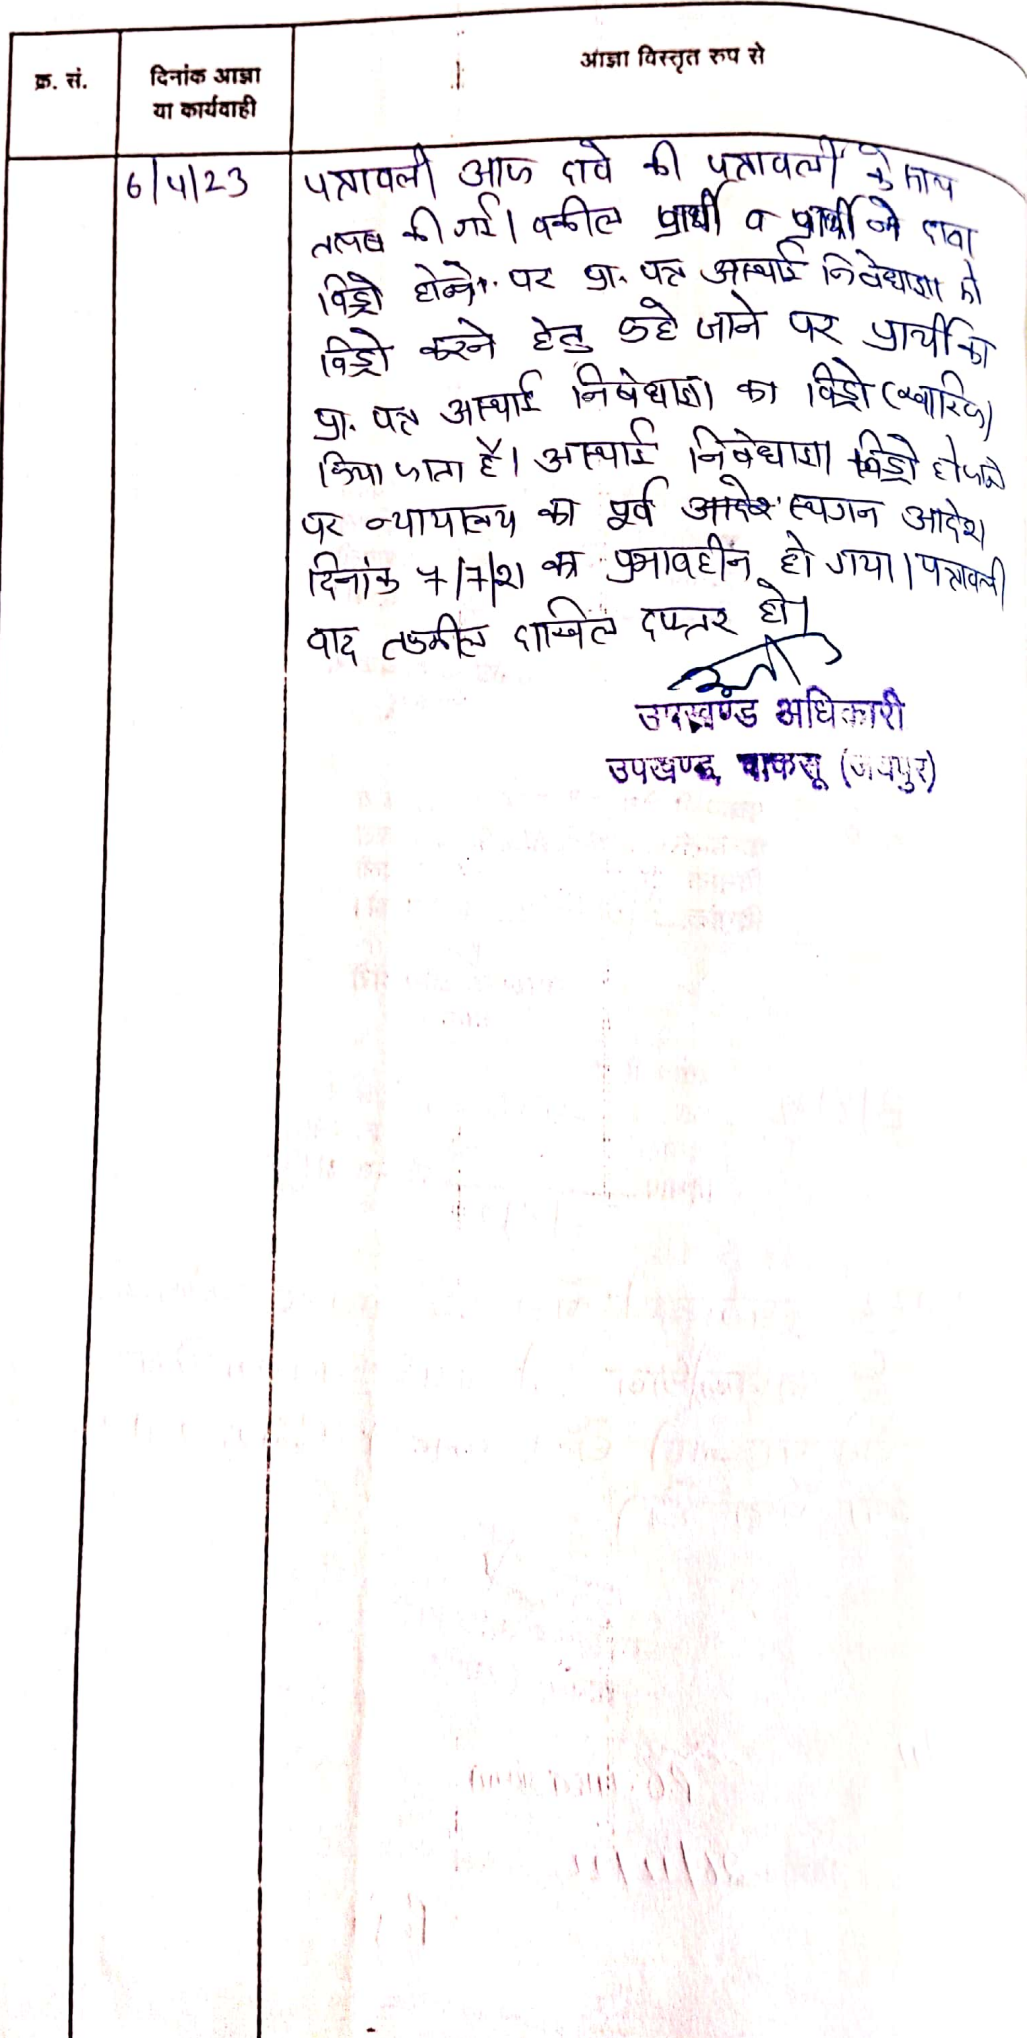 क्र. सं.
दिनांक आज्ञा
या कार्यवाही
आज्ञा विस्तृत रुप से
6/4/23
पत्रावली आज दावे की पत्रावली के साथ
तलब की गई। वकील प्रार्थी व प्रार्थी ने दावा
विड्रो होने पर प्रा. पत्र अस्थाई निषेधाज्ञा को
विड्रो करने हेतु कहे जाने पर प्रार्थी का
प्रा. पत्र अस्थाई निषेधाज्ञा का विड्रो (खारिज)
किया जाता है। अस्थाई निषेधाज्ञा विड्रो हो जाने
पर न्यायालय का पूर्व आदेश स्थगन आदेश
दिनांक 7/7/21 का प्रभावहीन हो गया। पत्रावली
वाद तकमील दाखिल दफ्तर हो।
उपखण्ड अधिकारी
उपखण्ड चाकसू (जयपुर)